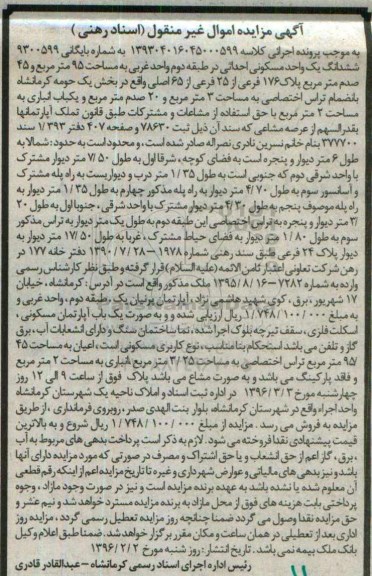 آگهی مزایده اموال غیر منقول (اسناد رهنی)
به موجب پرونده اجرائی کلاسه ۱۳۹۳۰۴۰۱۶۰۴۵۰۰۰۵۹۹ به شماره بایگانی ۹۳۰۰۵۹۹
ششدانگ یک واحد مسکونی احداثی در طبقه دوم واحد غربی به مساحت ۹۵ متر مربع و ۴۵
صدم متر مربع پلاک ۱۷۶ فرعی از ۲۵ فرعی از ۶۵ اصلی واقع در بخش یک حومه کرمانشاه
بانضمام تراس اختصاصی به مساحت ۳ متر مربع و ۲۰ صدم متر مربع و یکباب انباری به
مساحت ۲ متر مربع با حق استفاده از مشاعات و مشترکات طبق قانون تملک آپارتمانها
بقدرالسهم از عرصه مشاعی که سند آن ذیل ثبت ۷۸۶۳۰ و صفحه ۴۰۷ دفتر ۱/۳۹۳ سند
۳۷۷۷۰۰ بنام خانم نسرین نادری نصراله صادر شده است، و محدود است به حدود: شمالا به
طول ۶ متر دیوار و پنجره است به فضای کوچه، شرقا اول به طول ۷/۵۰ متر دیوار مشترک
با واحد شرقی دوم که جنوبی است به طول ۱/۳۵ متر درب و دیواریست به راه پله مشترک
و آسانسور سوم به طول ۴/۷۰ متر دیوار به راه پله مذکور چهارم به طول ۱/۳۵ متر دیوار به
راه پله موصوف پنجم به طول ۴/۳۰ متر دیوار مشترک با واحد شرقی، جنوبا اول به طول ۲۰
/۳ متر دیوار و پنجره به تراس اختصاصی این طبقه دوم به طول یک متر دیوار به تراس مذکور
سوم به طول ۱/۸۰ متر دیوار به فضای حیاط مشترک، غربا به طول ۱۷/۵۰ متر دیوار به
دیوار پلاک ۲۴ فرعی طبق سند رهنی شماره ۱۹۷۸ - ۱۳۹۰/۷/۲۸ دفتر خانه ۱۷۷ در
رهن شرکت تعاونی اعتبار ثامن الائمه (علیه السلام) قرار گرفته و طبق نظر کارشناس رسمی
وارده به شماره ۷۲۸۷ - ۱۳۹۵/۸/۱۶ ملک مذکور واقع است در آدرس: کرمانشاه، خیابان
۱۷ شهریور، برق، کوی شهید هاشمی نژاد، آپارتمان پرنیان یک، طبقه دوم، واحد غربی و
به مبلغ ۱/۷۴۸/۱۰۰/۰۰۰ ریال ارزیابی شده و به صورت یک باب آپارتمان مسکونی،
اسکلت فلزی، سقف تیرچه بلوک اجرا شده، نما ساختمان سنگ و دارای انشعابات آب، برق
گاز و تلفن می باشد استحکام بنا مناسب، نوع کاربری مسکونی است، اعیان به مساحت ۴۵
/۹۵ متر مربع تراس اختصاصی به مساحت ۳/۲۵ متر مربع انباری به مساحت ۲ متر مربع
و فاقد پارکینگ می باشد و به صورت مشاع می باشد پلاک فوق از ساعت ۹ الی ۱۲ روز
چهارشنبه مورخ ۱۳۹۶/۳/۳ در اداره ثبت اسناد و املاک ناحیه یک شهرستان کرمانشاه
واحد اجراء واقع در شهرستان کرمانشاه، بلوار بنت الهدی صدر، روبروی فرمانداری، از طریق
مزایده به فروش می رسد. مزایده از مبلغ ۱/۷۴۸/۱۰۰/۰۰۰ ریال شروع و به بالاترین
قیمت پیشنهادی نقدا فروخته می شود. لازم به ذکر است پرداخت بدهی های مربوط به آب
، برق، گاز اعم از حق انشعاب و یا حق اشتراک و مصرف در صورتی که مورد مزایده دارای آنها
باشد و نیز بدهی های مالیاتی و عوارض شهرداری و غیره تا تاریخ مزایده اعم از اینکه رقم قطعی
آن معلوم شده یا نشده باشد به عهده برنده مزایده است و نیز در صورت وجود مازاد، وجوه
پرداختی بابت هزینه های فوق از محل مازاد به برنده مزایده مسترد خواهد شد و نیم عشر و
حق مزایده نقدا وصول می گردد ضمنا چنانچه روز مزایده تعطیل رسمی گردد، مزایده روز
اداری بعد از تعطیلی در همان ساعت و مکان مقرر برگزار خواهد شد. ضمنا طبق اعلام وکیل
بانک ملک بیمه نمی باشد. تاریخ انتشار: روز شنبه مورخ ۱۳۹۶/۲/۲
رئیس اداره اجرای اسناد رسمی کرمانشاه - عبدالقادر قادری